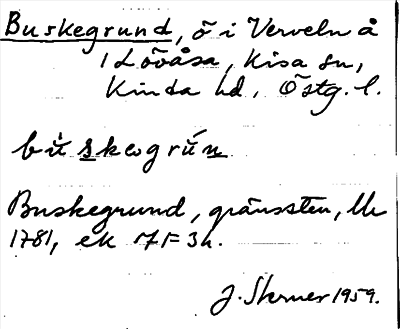 Buskegrund, ö i Verveln å
1 Lövåsa, Kisa sn,
Kinda hd, Östg. l.
bùskegrún
Buskegrund, gränssten,
1781, ek 3h.
J. Sterner 1959.